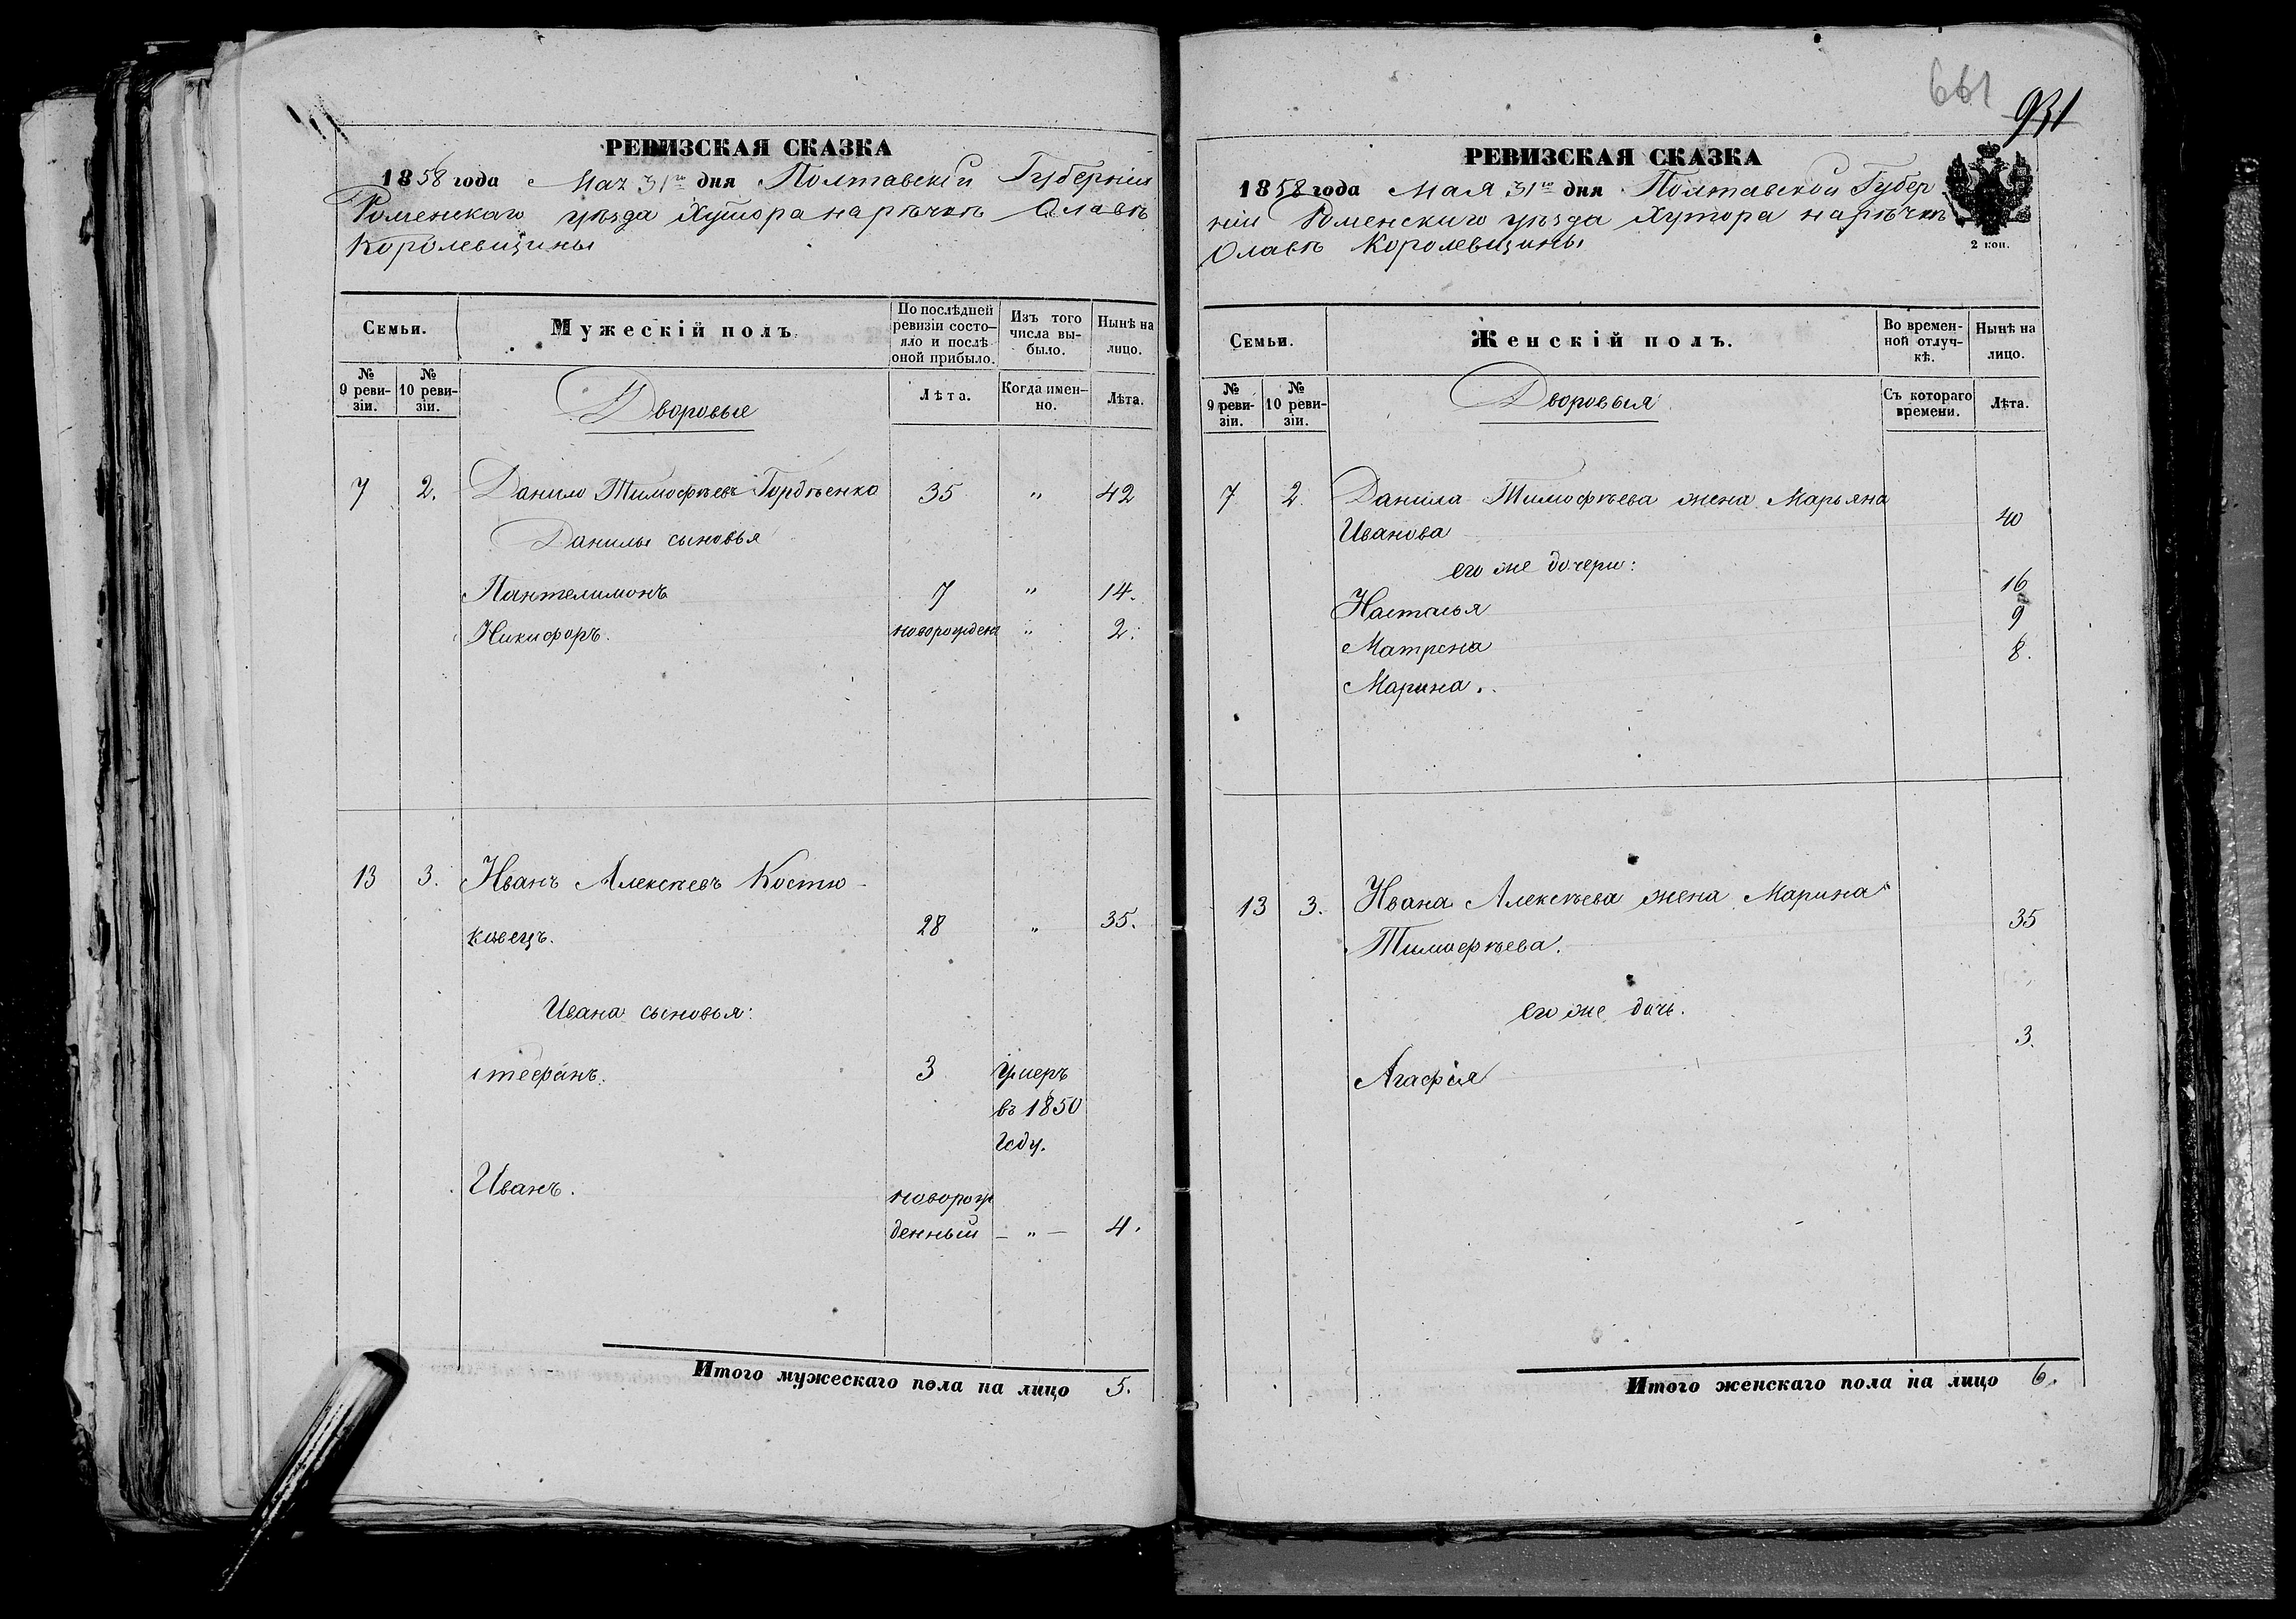 РЕВИЗСКАЯ СКАЗКА
1858 года Мая 31го дня Полтавской Губерніи
Роменскаго уѣзда Хутора на рѣчкѣ Олавѣ
Королевщины
Семьи.
Мужескій полъ.
По послѣдней ревизіи состояло и послѣ оной прибыло.
Изъ того числа выбыло.
Нынѣ на лицо.
№ 9 ревизіи.
№ 10 ревизіи.
Дворовые
Лѣта.
Когда именно.
Лѣта.
7 2. Данило Тимофѣевъ Гордѣенко 35 " 42
Данилы сыновья
Пантелимонъ 7 " 14.
Никифоръ. новорожден " 2.
13 3. Иванъ Алексѣевъ Костю-
ковецъ. 28 " 35.
Ивана сыновья:
Стефанъ. 3 умеръ
въ 1850
году.
Иванъ. новорож
денный – " – 4.
Итого мужескаго пола на лицо 5.
661
931
РЕВИЗСКАЯ СКАЗКА
1858 года Мая 31го дня Полтавской Губер
ніи Роменскаго уѣзда Хутора на рѣчкѣ
Олавѣ Королевщины
2 коп.
Семьи.
Женскій полъ.
Во временной отлучкѣ.
Нынѣ на лицо.
№ 9 ревизіи.
№ 10 ревизіи.
Дворовыя
Съ котораго времени.
Лѣта.
7 2. Данила Тимофѣева жена Марьяна
Иванова 40
его же дочери:
Насталья 16
Матрена 9
Марина. 8.
13 3. Ивана Алексѣева жена Марина
Тимофѣева. 35
его же дочь.
Агафія 3.
Итого женскаго пола на лицо 6.